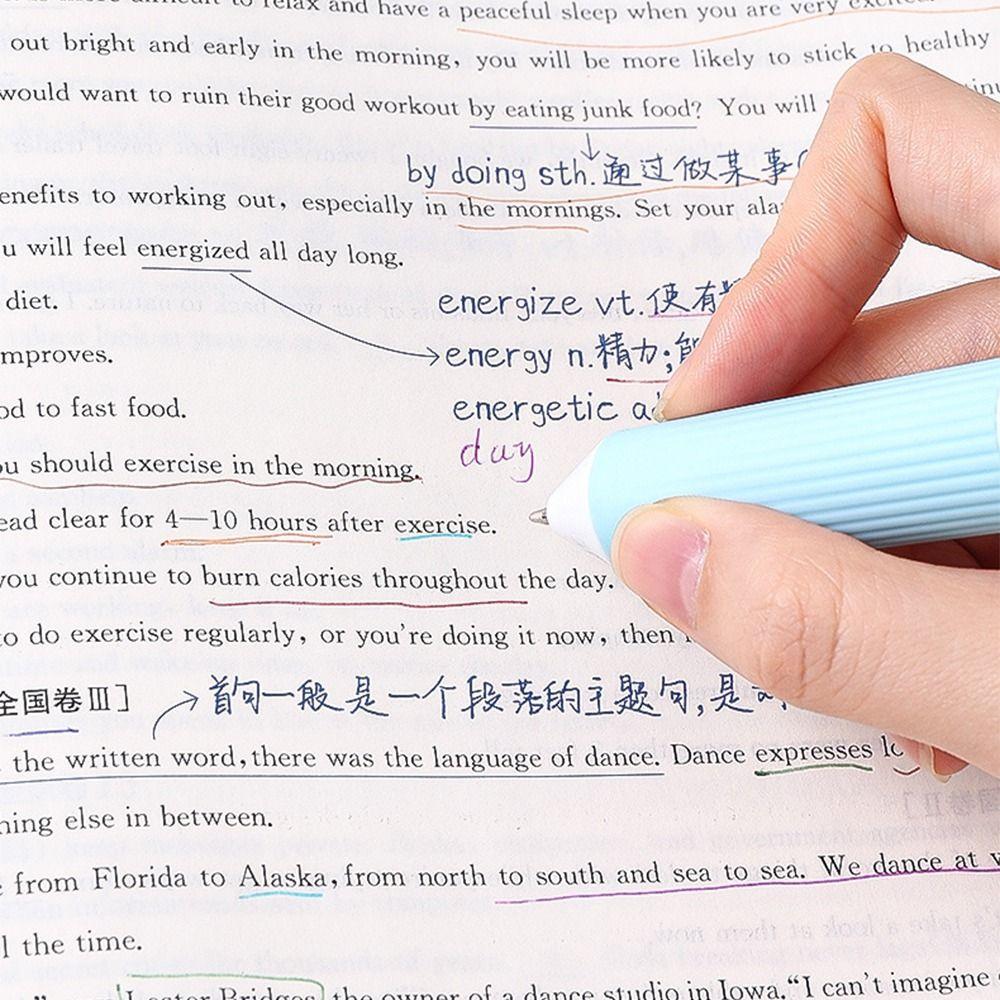 difficult to relax and have a peaceful sleep when you are very
out bright and early in the morning, you will be more likely to stick to healthy
would want to ruin their good workout by eating junk food? You will
by doing sth.通过做某事
enefits to working out, especially in the mornings. Set your
u will feel energized all day long.
energize vt.使有
diet.
energy n.精力;
mproves.
energetic
od to fast food.
day
ou should exercise in the morning.
ead clear for 4—10 hours after exercise.
you continue to burn calories throughout the day.
to do exercise regularly, or you're doing it now, then
全国卷Ⅲ]
→首句一般是一个段落的主题句,是
the written word,there was the language of dance. Dance expresses
hing else in between.
from Florida to Alaska,from north to south and sea to sea. We dance at
l the time.
Lester Bridges, the owner of a dance studio in Iowa."I can't imagine